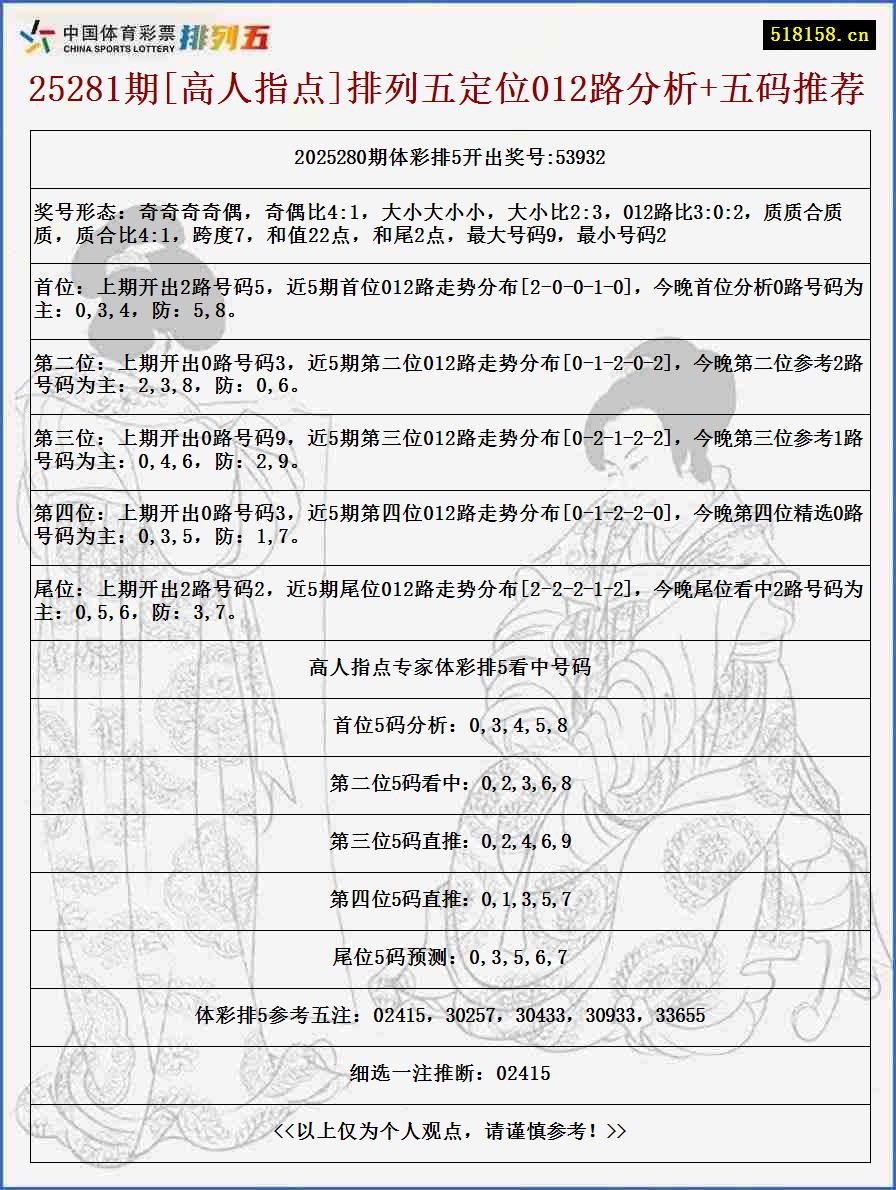 中国体育彩票
CHINA SPORTS LOTTERY
排列五
518158.cn
25281期[高人指点]排列五定位012路分析+五码推荐
2025280期体彩排5开出奖号:53932
奖号形态：奇奇奇奇偶，奇偶比4:1，大小大小小，大小比2:3，012路比3:0:2，质质合质
质，质合比4:1，跨度7，和值22点，和尾2点，最大号码9，最小号码2
首位：上期开出2路号码5，近5期首位012路走势分布[2-0-0-1-0]，今晚首位分析0路号码为
主：0,3,4，防：5,8。
第二位：上期开出0路号码3，近5期第二位012路走势分布[0-1-2-0-2]，今晚第二位参考2路
号码为主：2,3,8，防：0,6。
第三位：上期开出0路号码9，近5期第三位012路走势分布[0-2-1-2-2]，今晚第三位参考1路
号码为主：0,4,6，防：2,9。
第四位：上期开出0路号码3，近5期第四位012路走势分布[0-1-2-2-0]，今晚第四位精选0路
号码为主：0,3,5，防：1,7。
尾位：上期开出2路号码2，近5期尾位012路走势分布[2-2-2-1-2]，今晚尾位看中2路号码为
主：0,5,6，防：3,7。
高人指点专家体彩排5看中号码
首位5码分析：0,3,4,5,8
第二位5码看中：0,2,3,6,8
第三位5码直推：0,2,4,6,9
第四位5码直推：0,1,3,5,7
尾位5码预测：0,3,5,6,7
体彩排5参考五注：02415，30257，30433，30933，33655
细选一注推断：02415
<<以上仅为个人观点，请谨慎参考！>>